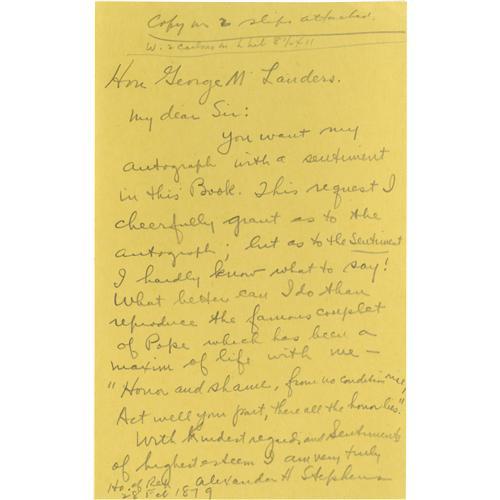 Copy on 2 slips attached.
W. 2 carbons on 8½x11
Hon George M Landers.
My dear Sir:
You want my
autograph with a sentiment
in this Book. This request I
cheerfully grant as to the
autograph; but as to the Sentiment
I hardly know what to say!
What better can I do than
reproduce the famous couplet
of Pope which has been a
maxim of life with me —
"Honor and shame, from no condition rise,
Act well your part, there all the honor lies."
With kindest regards and Sentiments
of highest esteem I am very truly
Ho. of Rep Alexander H Stephens
28 Feb 1879